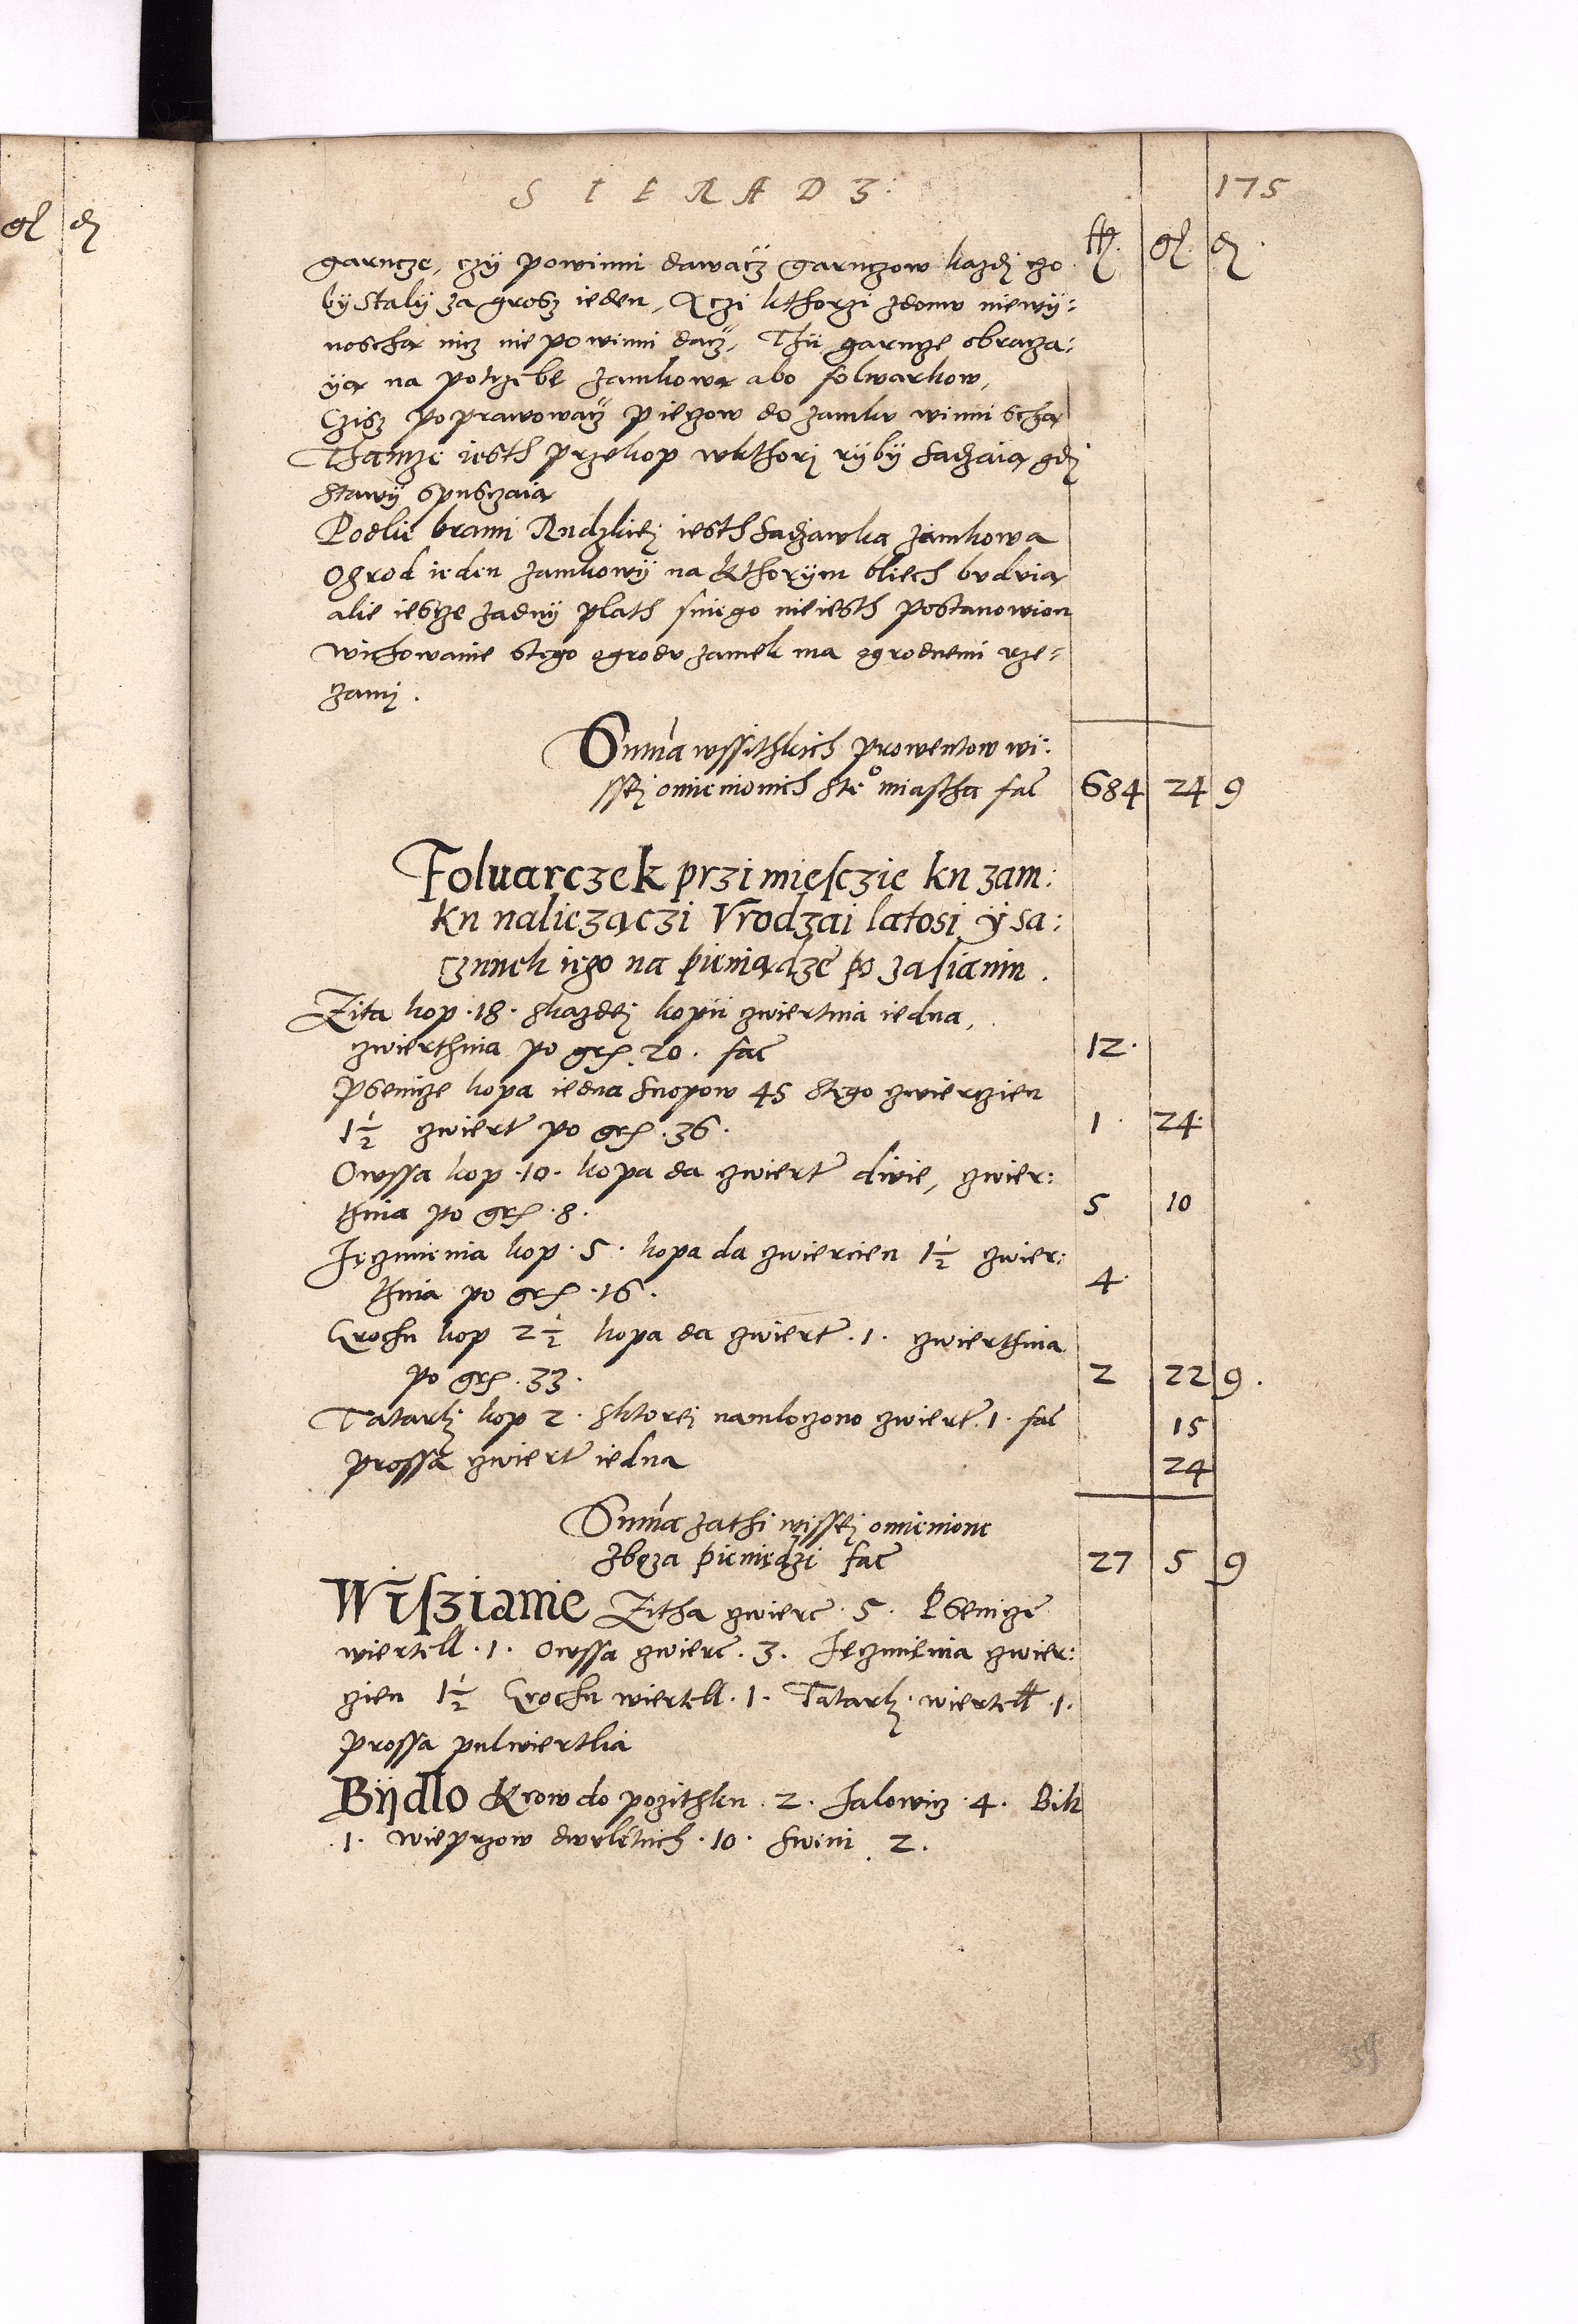 SIERADZ: 175
gł đ
ffl. gł. đ.
garncze, czÿ powinni dawacz garnczow kazdi czo
bÿ stalÿ za grosz ieden, A czi kthorzi zdomu niewÿ:
noscha nicz nie powinni dacz, Thÿ garncze obracza:
ÿa na potrzebe zamkowa abo folwarkow,
Czisz poprawowacz pieczow do zamku winni scha
Thamze iesth przekop wkthori rÿbÿ sadzaia gdi
stawÿ spusczaia
Podlie brami Rudzkiei iesth sadzawka zamkowa
Ogrod ieden zamkowÿ na kthorÿm bliech buduia
alie iescze zadnÿ plath sniego nieiesth postanowion
wichowanie stego ogrodu zamek ma ogrodnemi rze-
czami.
Summa wssithkich prowentow wi:
ssei omienionich ste° miastha fac 684 24 9
Foluarczek przi miesczie ku zam:
ku naliezączi Vrodzai latosi ÿ sa:
czunek iego na pieniądze po zasianiu.
Zita kop .18. skazdei kopii czwiertnia iedna,
czwierthnia po grs. 20. fac 12.
Psenicze kopa iedna snopow 45 stego czwierczien
1½ czwiert po grs .36. 1. 24.
Owssa kop .10. kopa da czwiert dwie, czwier:
thnia po grs .8. 5 10
Jęczmienia kop .5. kopa da czwiercien 1½ czwier:
thnia po grs .16. 4.
Grochu kop 2½ kopa da czwiert .1. czwierthnia
po grs .33. 2 22 9.
Tatarki kop 2. sktorei namloczono czwiert .1. fac 15
prossa czwiert iedna 24
Summa zathi wissei omienione
zboza pieniedzi fac 27 5 9
Wiszianie Zitha czwierc .5. Psenicze
wiertell .1. Owssa czwierc .3. Jęczmienia czwier:
czien 1½ Grochu wiertell .1. Tatarki wiertell .1.
prossa pulwiertlia
Bÿdlo Krow do pozithku .2. Jalowicz .4. Bik
.1. wieprzow dwuletnich .10. swini .2.